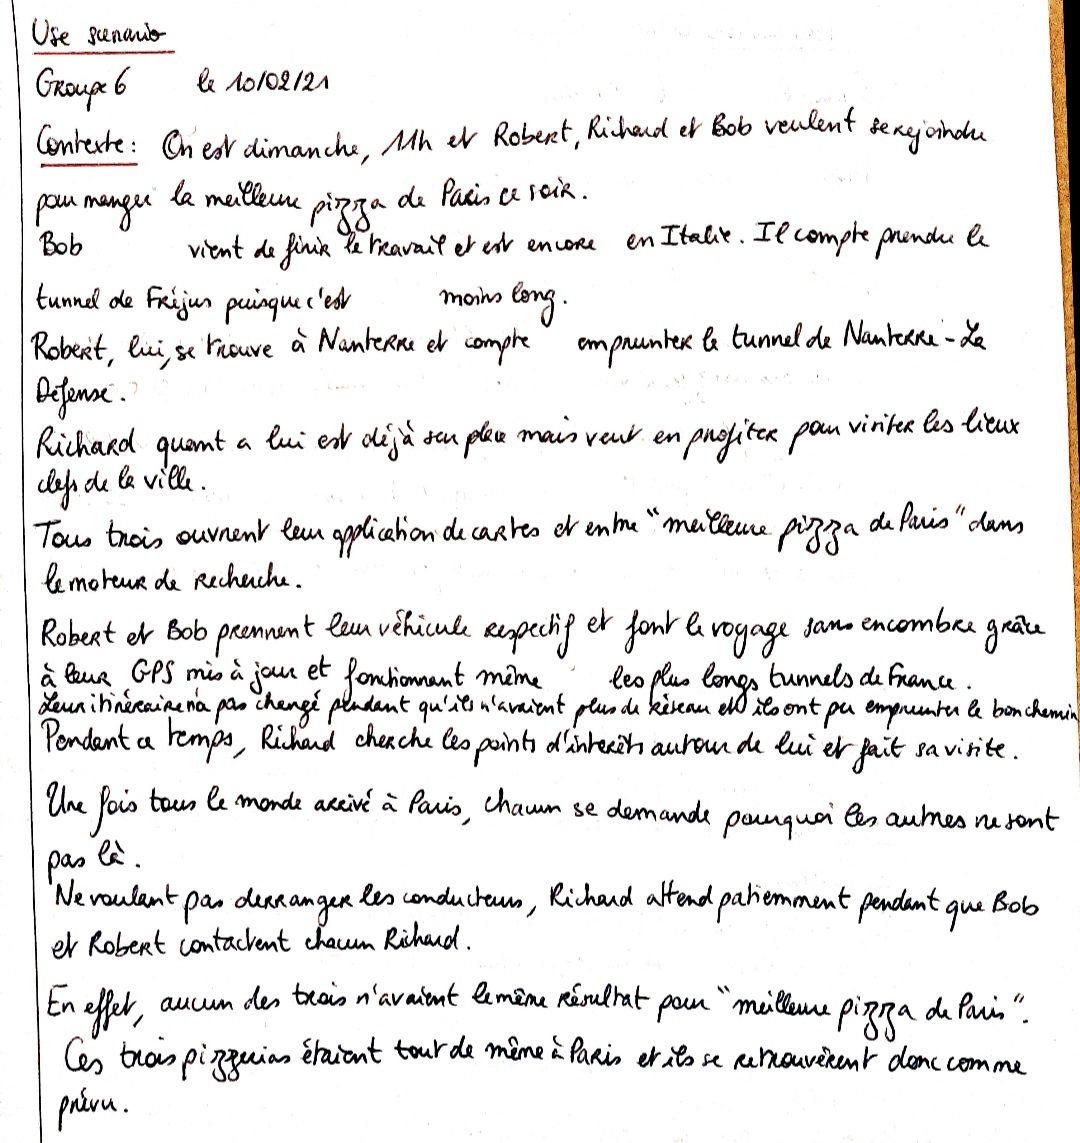 Use scenario
Groupe 6 le 10/02/21
Contexte : On est dimanche, 11h et Robert, Richard et Bob veulent se rejoindre
pour manger la meilleure pizza de Paris ce soir.
Bob vient de finir le travail et est encore en Italie. Il compte prendre le
tunnel de Fréjus puisque c'est moins long.
Robert, lui, se trouve à Nanterre et compte emprunter le tunnel de Nanterre - La
Défense.
Richard quant a lui est déjà sur place mais veut en profiter pour visiter les lieux
clefs de la ville.
Tous trois ouvrent leur application de cartes et entre "meilleure pizza de Paris" dans
le moteur de recherche.
Robert et Bob prennent leur véhicule respectif et font le voyage sans encombre grâce
à leur GPS mis à jour et fonctionnant même les plus longs tunnels de France.
Leur itinéraire n'a pas changé pendant qu'ils n'avaient plus de réseau et ils ont pu emprunter le bon chemin
Pendant ce temps, Richard cherche les points d'interêts autour de lui et fait sa visite.
Une fois tous le monde arrivé à Paris, chacun se demande pourquoi les autres ne sont
pas là.
Ne voulant pas derranger les conducteurs, Richard attend patiemment pendant que Bob
et Robert contactent chacun Richard.
En effet, aucun des trois n'avaient le même résultat pour "meilleure pizza de Paris".
Ces trois pizzerias étaient tout de même à Paris et ils se retrouvèrent donc comme
prévu.